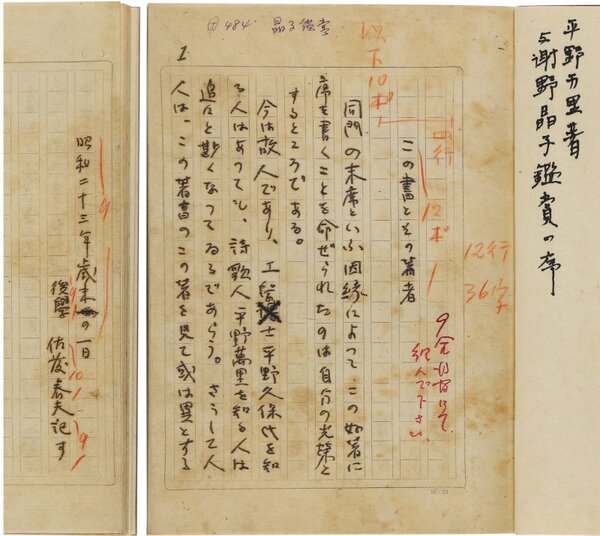 平野万里著
与謝野晶子鑑賞の序
484 晶子鑑賞
1
以下10ポ
四行
12ポ
12行
36字
9全角あけて
組んで下さい
この書とその著者
同門の末席といふ因縁によつて、この好著に
序を書くことを命ぜられたのは自分の光栄と
するところである。
今は故人であり、工学士平野久保氏を知
る人はあつても、詩歌人平野萬里を知る人は
追々と尠くなつてゐるであらう。さうして人
人は、この著書のこの著を見て或は異とする
昭和二十三年歳末の一日
後学 佐藤春夫記す
9
10
1
9